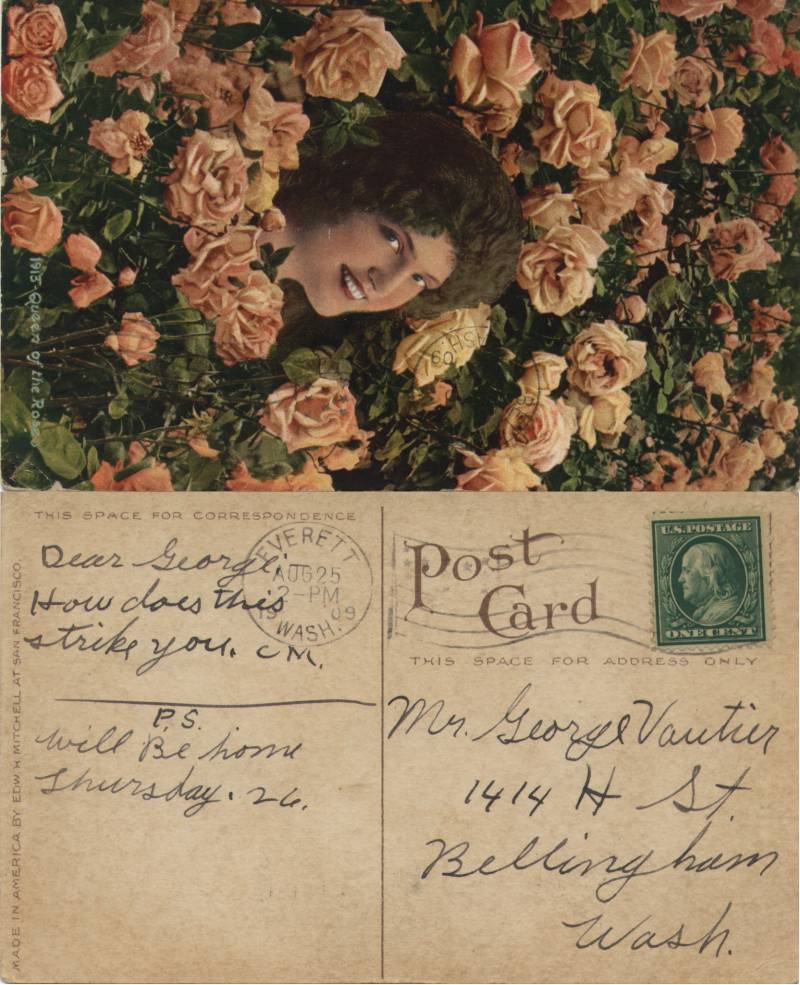 1915-Queen of the Roses
SH.
09
THIS SPACE FOR CORRESPONDENCE
Dear George,
How does this
strike you. C M.
P.S.
Will Be home
Thursday. 26.
EVERETT
AUG 25
2-PM
19 09
WASH.
MADE IN AMERICA BY EDW. H. MITCHELL AT SAN FRANCISCO.
Post
Card
U.S. POSTAGE
ONE CENT
THIS SPACE FOR ADDRESS ONLY
Mr. George Vautier
1414 H St.
Bellingham
Wash.